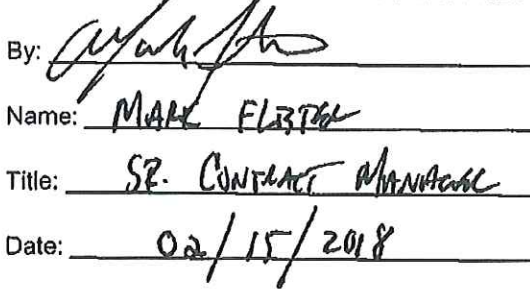 By:
Name: MARK
Title: SR. CONTRACT MANAGER
Date: 02/15/2018